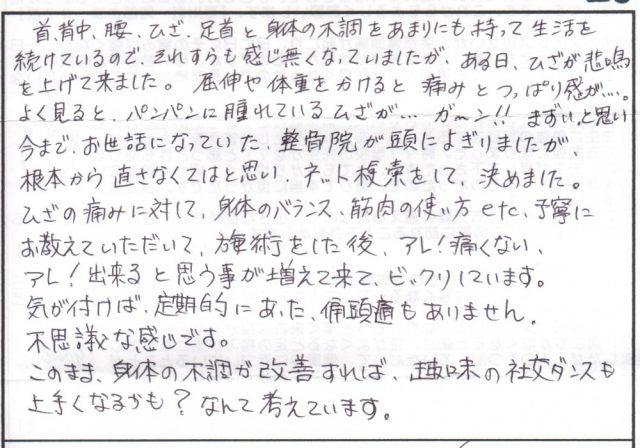 首、背中、腰、ひざ、足首と身体の不調をあまりにも持って生活を
続けているので、それすらも感じ無くなっていましたが、ある日、ひざが悲鳴
を上げて来ました。屈伸や体重をかけると痛みとつっぱり感が…。
よく見ると、パンパンに腫れているひざが… ガ〜ン!! まずいと思い
今まで、お世話になっていた、整骨院が頭によぎりましたが、
根本から直さなくてはと思い、ネット検索をして、決めました。
ひざの痛みに対して、身体のバランス、筋肉の使い方etc、丁寧に
お教えていただいて、施術をした後、アレ!痛くない、
アレ!出来ると思う事が増えて来て、ビックリしています。
気が付けば、定期的にあった、偏頭痛もありません。
不思議な感じです。
このまま、身体の不調が改善すれば、趣味の社交ダンスも
上手くなるかも?なんて考えています。